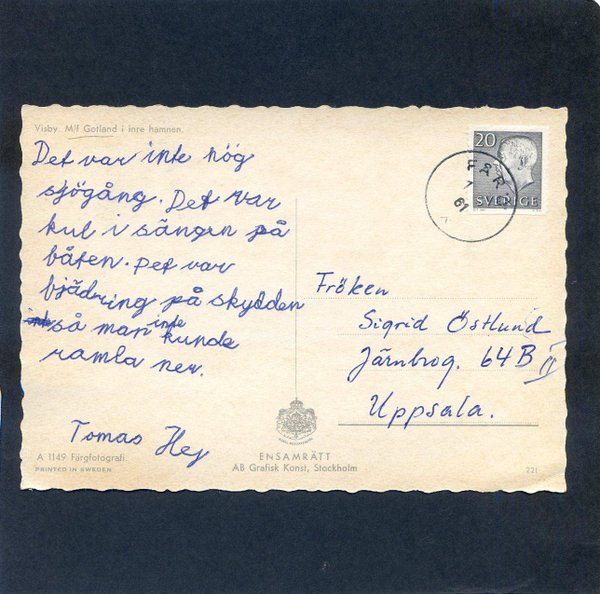 Visby. M/f Gotland i inre hamnen.
Det var inte hög
sjögång. Det var
kul i sängen på
båten. Det var
bjädring på skydden
så man inte kunde
ramla ner.
Tomas Hej
A 1149 Färgfotografi.
PRINTED IN SWEDEN
ENSAMRÄTT
AB Grafisk Konst, Stockholm
221
20
SVERIGE
FÅR
7
61
Fröken
Sigrid Östlund
Järnbrog. 64 B II
Uppsala.